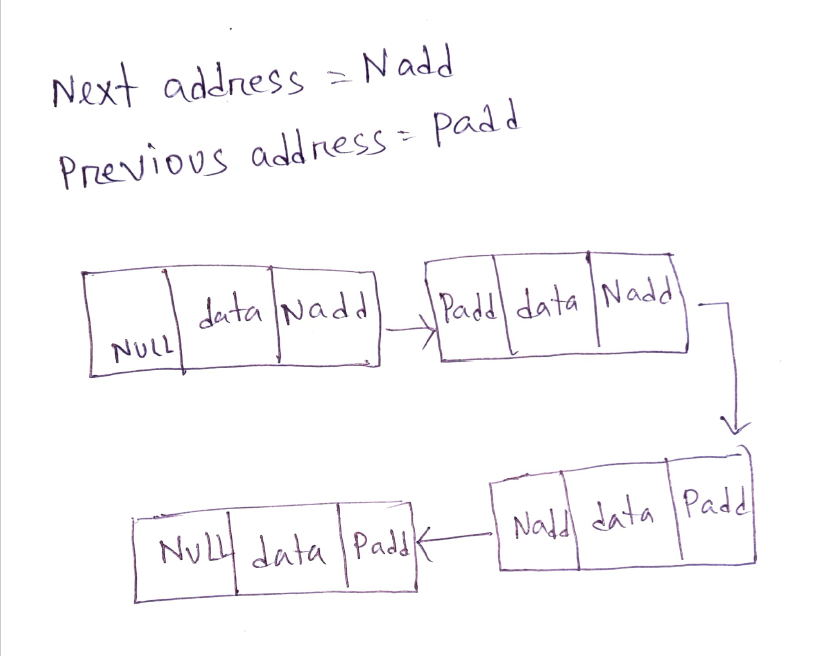 Next address = Nadd
Previous address = Padd
NULL data Nadd
Padd data Nadd
Nadd data Padd
NULL data Padd